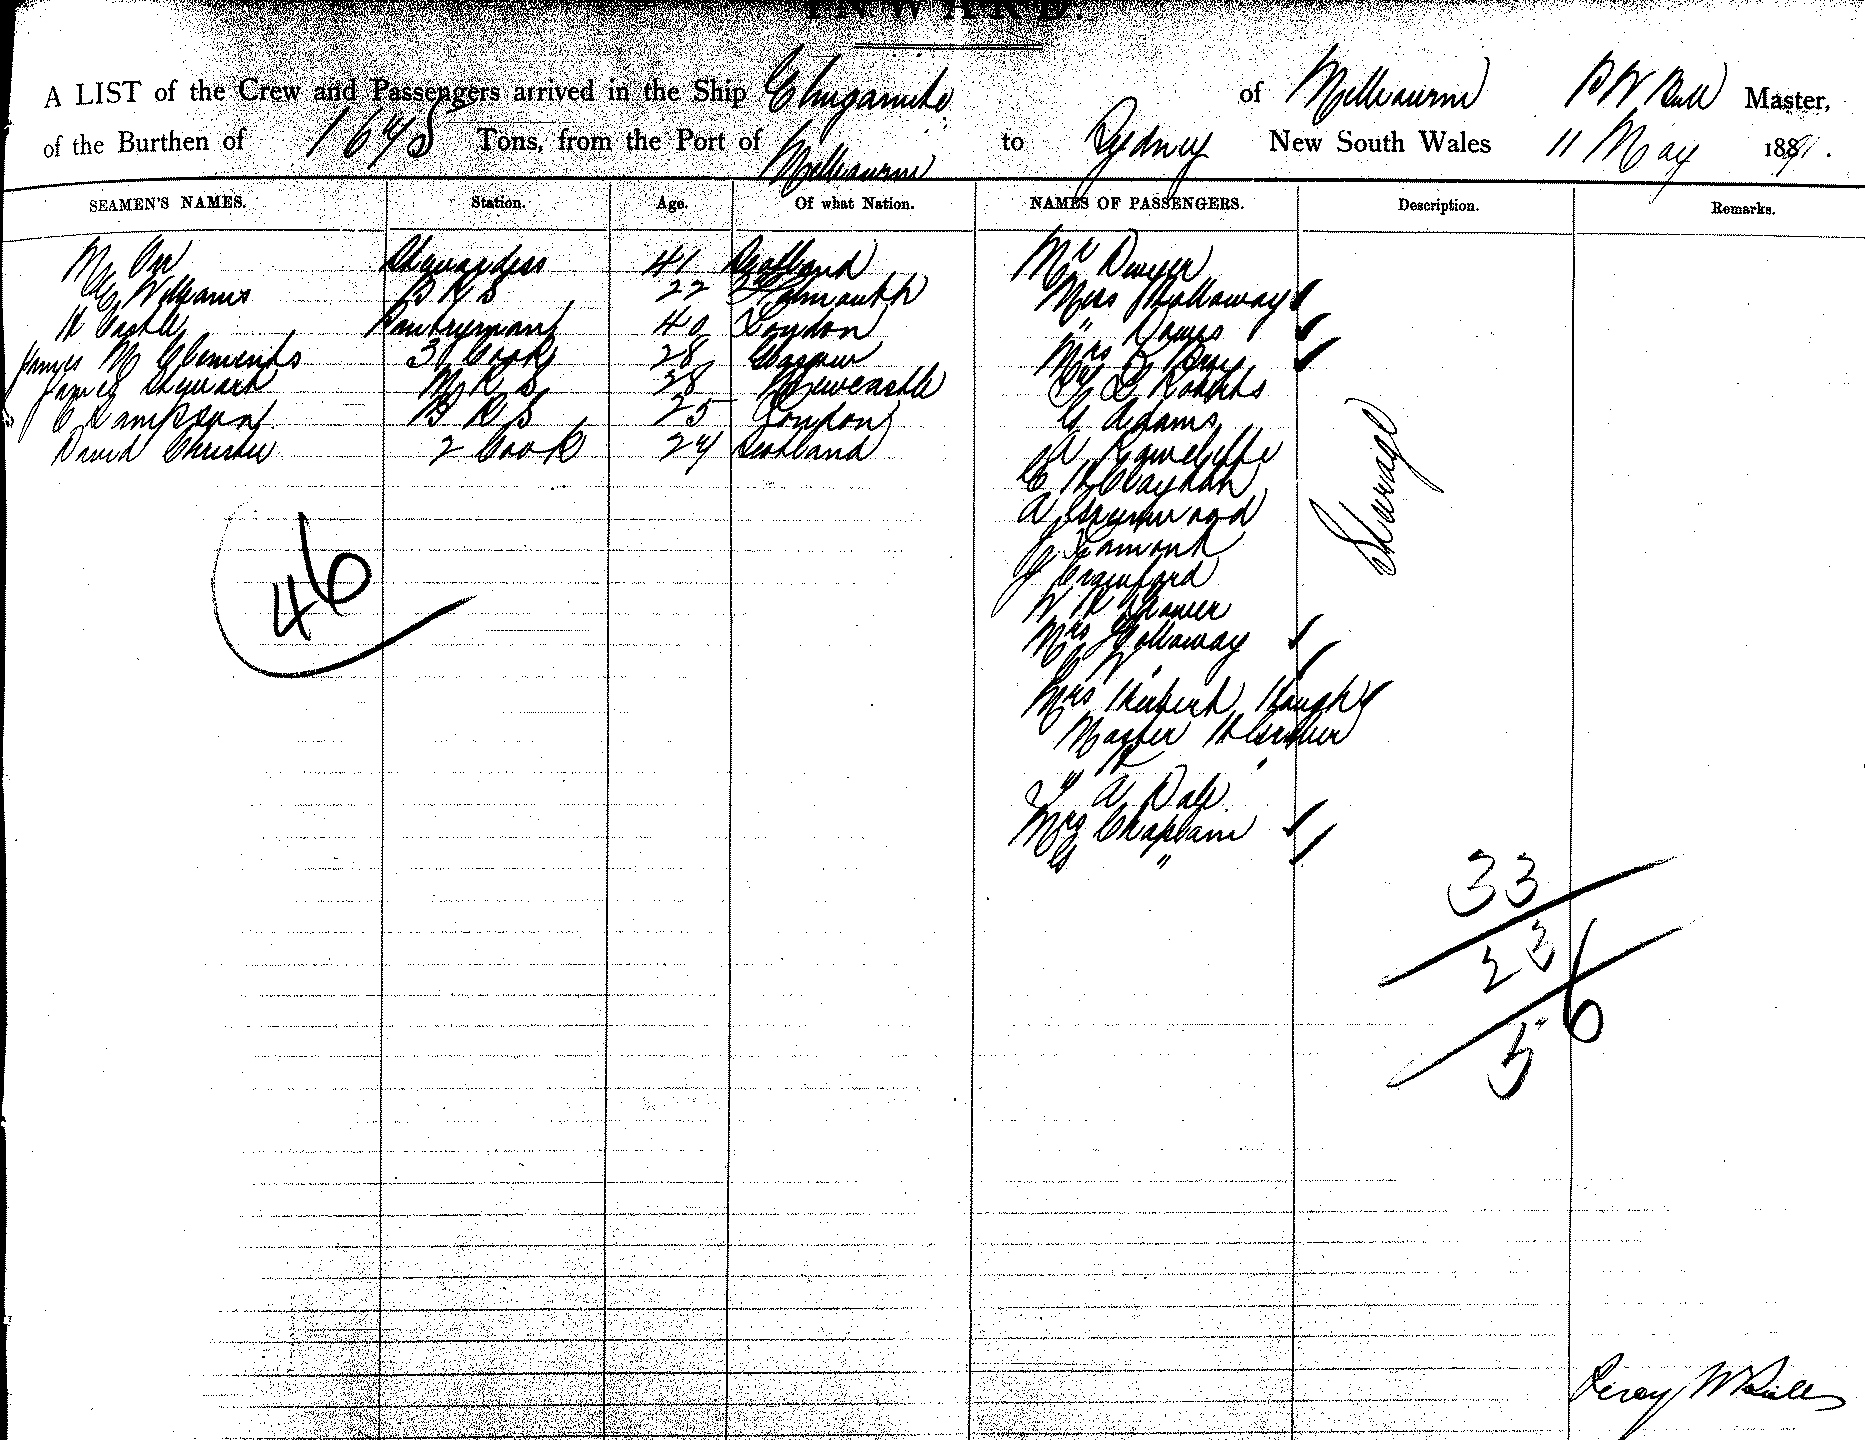 INWARD.
A LIST of the Crew and Passengers arrived in the Ship Elingamite of Melbourne P W Bull Master,
of the Burthen of 1675 Tons, from the Port of Melbourne to Sydney New South Wales 11 May 1891.
SEAMEN'S NAMES. Station. Age. Of what Nation. NAMES OF PASSENGERS. Description. Remarks.
M Orr Stewardess 41 Scotland Mr Dwyer
C Williams B R S 22 Falmouth Miss Holloway
H Castle Pantryman 40 London " Dawes
James M Clements 3 Cook 28 Glasgow Mrs Bray
James Stewart M R S 28 Newcastle Robbs
C Sampson B R S 25 London G Adams
David Christie 2 Cook 24 Scotland A Rawcliffe
C H Clayton
A Greenwood
J Lamont
J Crawford
W H
Mrs Holloway
Mrs Herbert
Master
A Dale
Mrs Chaplain
"
Steerage
46
33
23
56
Percy W Bull